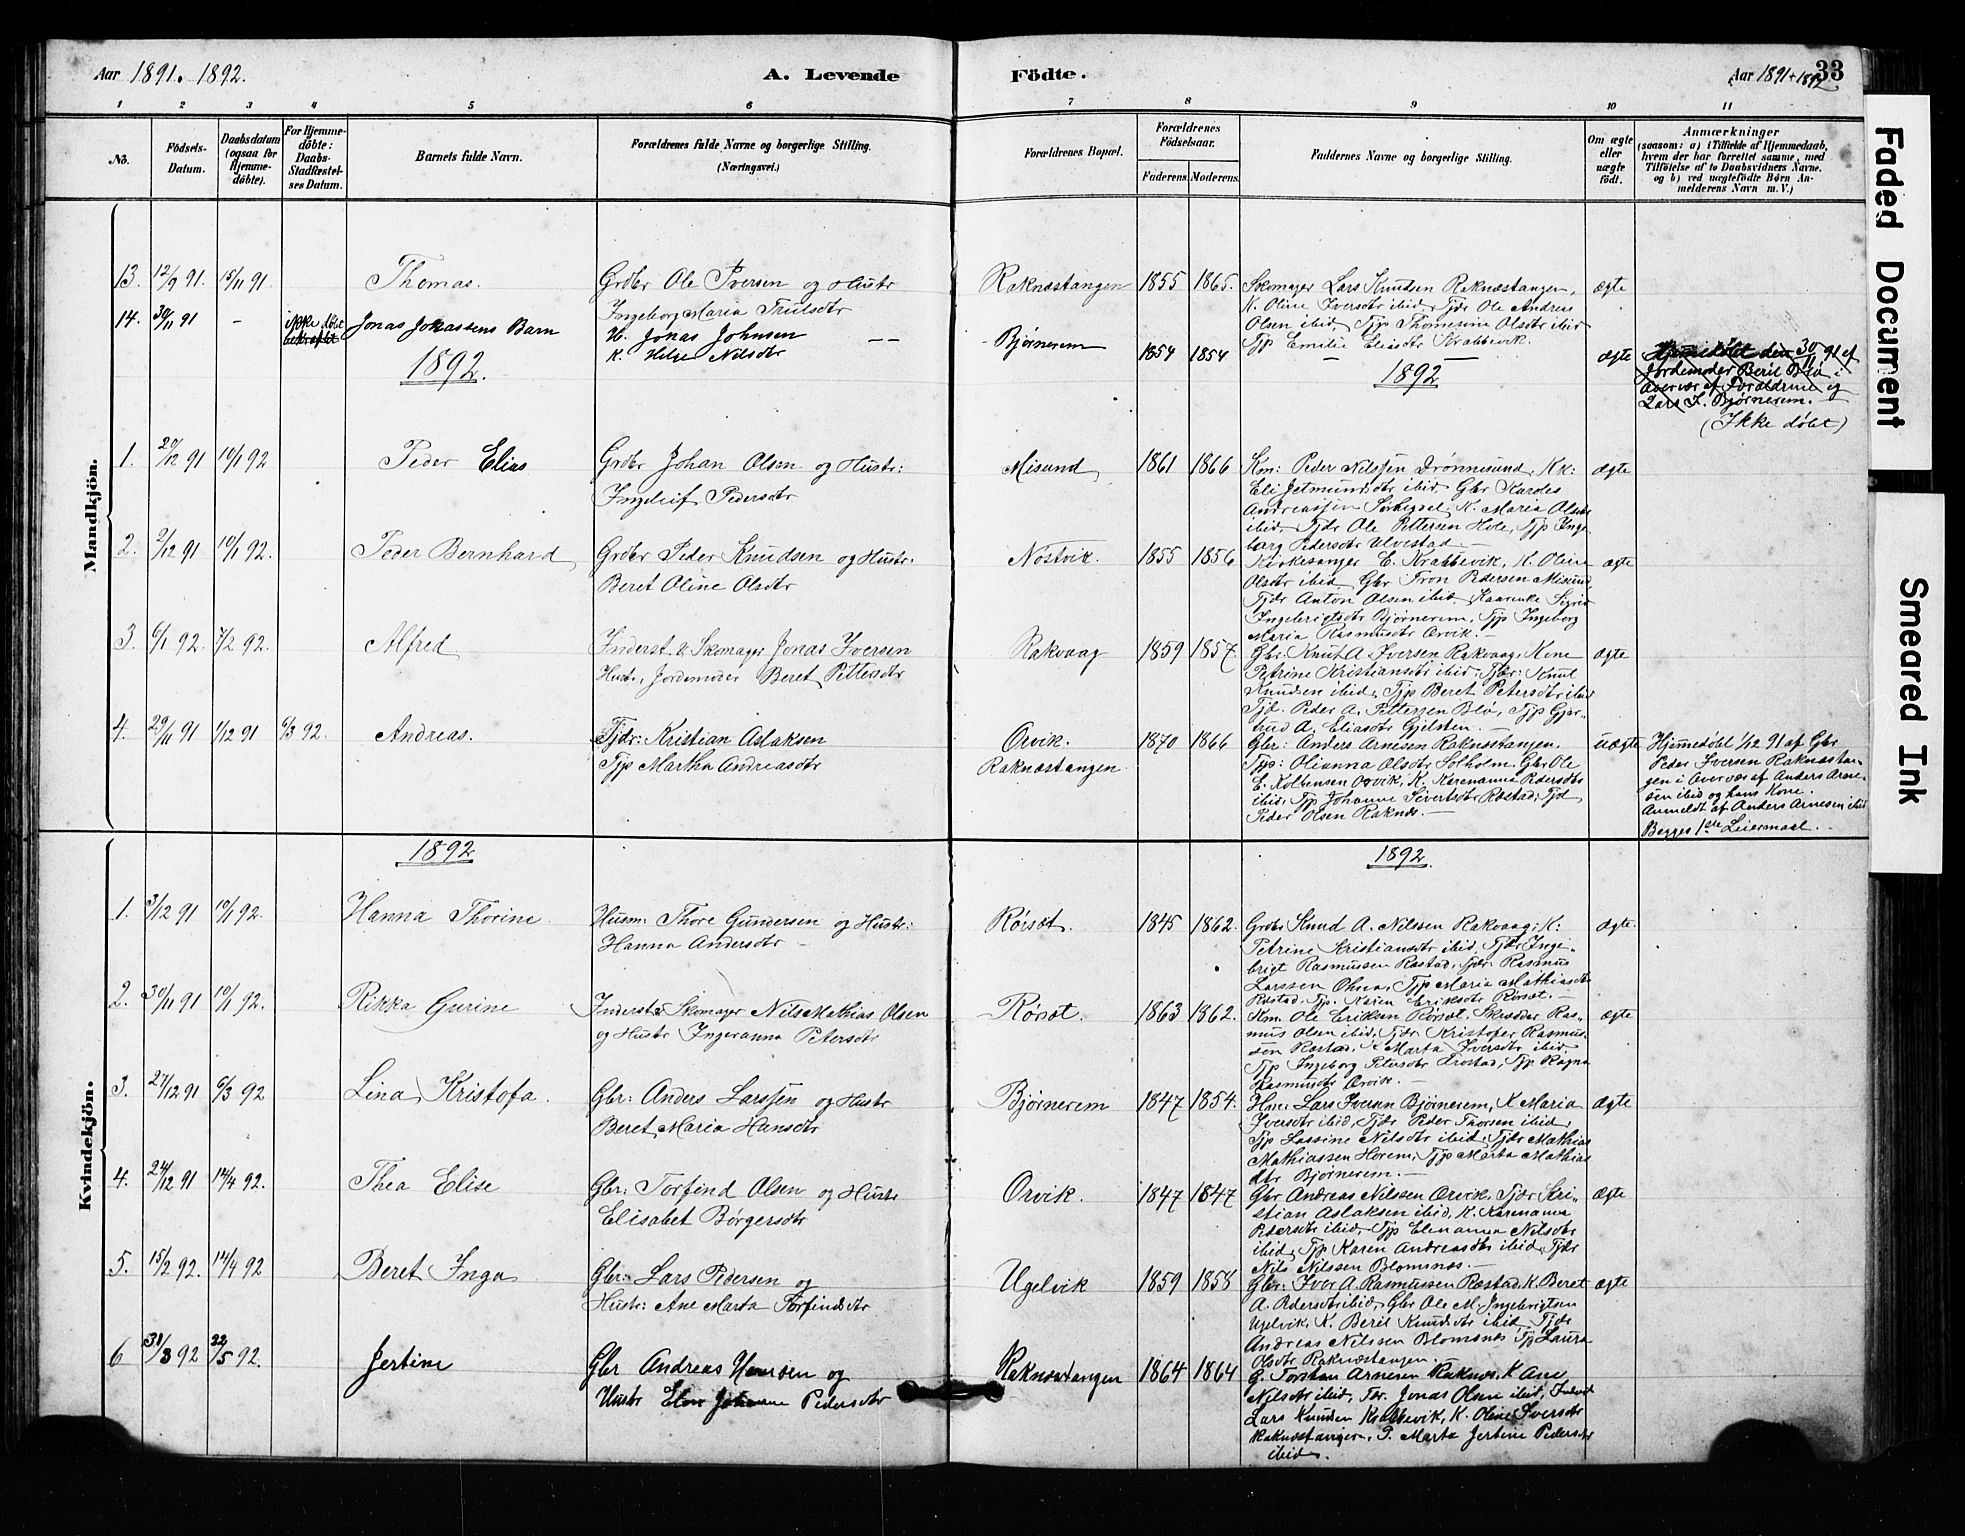 Aar 1891. 1892.
A. Levende
Födte.
Aar 1891 + 1892
33
1 2 3 4 5 6 7 8 9 10 11
No.
Födsels-
Datum.
Daabsdatum
(ogsaa for
Hjemme-
döbte).
For Hjemme-
döbte:
Daabs-
Stadfæstel-
ses Datum.
Barnets fulde Navn.
Forældrenes fulde Navne og borgerlige Stilling.
(Næringsvei.)
Forældrenes Bopæl.
Forældrenes
Födselsaar.
Faderens. Moderens.
Faddernes Navne og borgerlige Stilling.
Om ægte
eller
uægte
födt.
Anmærkninger
(saasom: a) i Tilfælde af Hjemmedaab,
hvem der har forrettet samme, med
Tilföielse af to Daabsvidners Navne,
og b) ved uægtefödte Börn An-
melderens Navn m. V.)
Mandkjön.
13. 12/9 91. 15/11 91 Thomas.
Grdbr Ole Iversen og Hustr
Ingeborg Maria Trulsdtr
Raknæstangen 1855 1865.
Skomager Lars Knudsen Raknæstangen,
K. Oline Iversdtr ibid, Tjdr Ole Andreas
Olsen ibid, Tjp Thomasine Olsdtr ibid
Tjp Emilie Eliasdtr Krabbevik.
ægte
14. 30/11 91 - ikke døbt
Jonas Jonassens Barn
H. Jonas Johnsen
K. Nilsdtr
Bjørnerem 1854 1854 ægte
Hjemmedøbt den 30/11 91 af
Jordemoder Beril Blø i
Overvær af Forældrene og
Lars I. Bjørnerem.
(Ikke døbt)
1892.
1892
1. 20/12 91 10/1 92 Peder Elias
Grdbr Johan Olsen og Hustr:
Ingeleif Pedersdtr
Misund 1861 1866
Km: Peder Nilssen Drønnesund, Kk:
Eli Jetmundsdtr ibid, Gbr Kardes
Andreassen K. Maria Olsdtr
ibid, Tjdr Ole Pettersen Hole, Tjp Inge
borg Pedersdtr Ulvestad
ægte
2. 9/12 91 10/1 92. Peder Bernhard
Grdbr Peder Knudsen og Hustr:
Beret Oline Olsdtr
Nøstvik. 1855 1856
Kirkesanger E. Krabbevik, K. Oline
Olsdtr ibid, Gbr Tron Pedersen Misund,
Tjdr Anton Olsen ibid, Kaarenke Sigrid
Ingebrigtsdtr Bjørnerem, Tjp Ingeborg
Maria Rasmusdtr Orvik.
ægte
3. 6/1 92. 7/2 92. Alfred
Inderst & Skomager Jonas Iversen
Hustr, Jordemoder Beret Pettersdtr
Rakvaag 1859 1857.
Gbr: Knut A. Iversen Rakvaag, Kone
Petrine Kristiansdtr ibid, Tjdr: Knut
Knudsen ibid, Tjp Beret Petersdtr ibid
Tjd. Peder A. Pettersen Blø, Tjp Gjer-
trud A. Eliasdtr Gjelsten.
ægte
4. 29/11 91 1/12 91 6/3 92. Andreas.
Tjdr: Kristian Aslaksen
Tjp Martha Andreasdtr
Orvik.
Raknæstangen.
1870 1866
Gbr: Anders Arnesen Raknæstangen.
Tjp: Olianna Olsdtr Solholm, Gbr Ole
E. Kolbensen Orvik, K. Karenanna Pedersdtr
ibid, Tjp Johanne Sivertsdtr Røstad, Tjd
Peder Olsen Raknæs.
uægte
Hjemmedøbt 1/12 91 af Gbr
Peder Iversen Raknæstan-
gen i Overvær af Anders Arne-
sen ibid og hans Kone.
Anmeldt af Anders Arnesen ibid
Begges 1ste Leiermaal.
Kvindekjön.
1892
1892.
1. 3/12 91 10/1 92. Hanna Thorine
Husm: Thore Gundersen og Hustr:
Hanna Andersdtr
Rørsæt. 1845 1862.
Grdbr Knud A. Nilssen Rakvaag, K:
Petrine Kristiansdtr ibid, Tjdr Inge-
brigt Rasmussen Røstad, Tjdr: Rasmus
Larssen Tjp Maria Mathiasdtr
Røstad, Tjp. Karen Eriksdtr Rørsæt.
ægte.
2. 30/11 91 10/1 92. Rikka Gurine
Inderst & Skomager Nils Mathias Olsen
og Hustr Ingeranna Petersdtr
Rørsæt. 1863 1862.
Km. Ole Eriksen Rørsæt, Skrædder Ras-
mus Olsen ibid, Tjdr Kristofer Rasmus-
sen Røstad, K Marta Iversdtr ibid
Tjp Ingeborg Petersdtr Tjp Ragna
Rasmusdtr Orvik.
ægte
3. 27/12 91 6/3 92 Lina Kristofa.
Gbr: Anders Larssen og Hustr
Beret Maria Hansdtr
Bjørnerem 1847 1854.
Hm: Lars Iversen Bjørnerem, K Maria
Iversdtr ibid, Tjdr Peder Thorsen ibid,
Tjp Lassine Nilsdtr ibid, Tjdr Mathias
Mathiassen Horem, Tjp Marta Mathias
dtr Bjørnerem.
Ægte
4. 24/12 91 14/4 92. Thea Elise
Gbr: Torfind Olsen og Hustr
Elisabet Børgersdtr
Orvik. 1847 1847
Gbr Andreas Nilssen Orvik, Tjdr Kri-
stian Aslaksen ibid, K. Karenanna
Pedersdtr ibid, Tjp Elenanna Nilsdtr
ibid, Tjp Karen Andreasdtr ibid, Tjdr
Nils Nilssen Blomsnæs.
Ægte
5. 15/2 92. 14/4 92 Beret Inga
Gbr: Lars Pedersen og
Hustr: Ane Marta Torfindsdtr
Ugelvik 1859 1858
Gbr: Iver A. Rasmussen Røstad, K. Beret
A. Pedersdtr ibid, Gbr Ole M. Ingebrigtsen
Ugelvik, K. Beril Knudsdtr ibid, Tjdr
Andreas Nilssen Blomsnæs, Tjp Laura
Olsdtr Raknæstangen
ægte
6 31/3 92 22/5 92. Jertine
Gbr Andreas Hansen og
Hustr Johanne Pedersdtr
Raknæstangen 1864 1864
G. Torsten Arnesen Raknæs, K Ane
Nilsdtr ibid, Jonas Olsen ibid,
Lars Knudsen Krabbevik, K. Oline Iversdtr
Raknæstangen, P. Marta Jertine Pedersdtr
ibid.
Faded Document
Smeared Ink